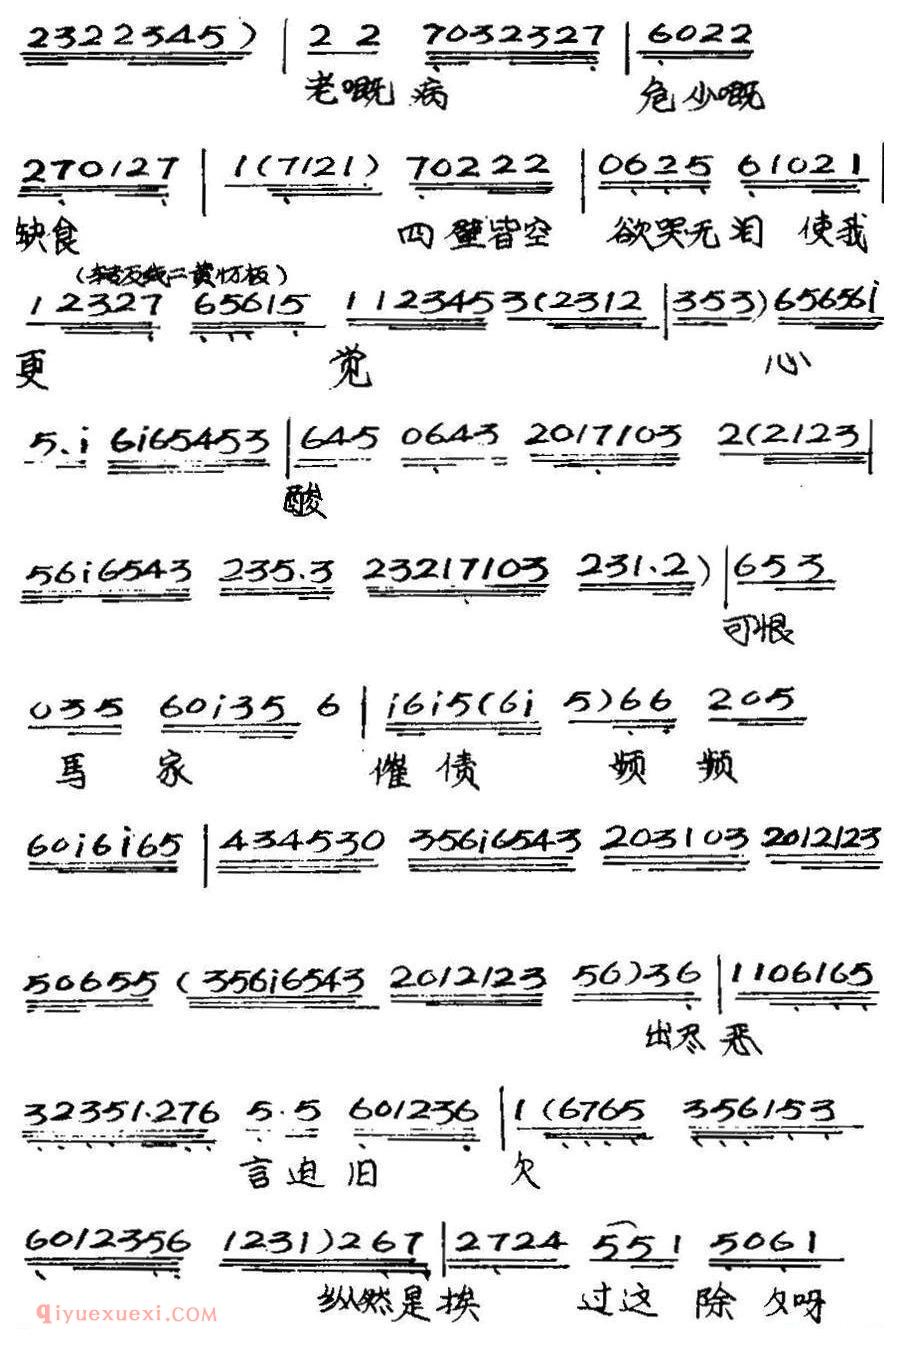 2322345) | 2 2 7032327 | 6022
老嘅病 危少嘅
270127 | 1(7121) 70222 | 0625 61021 |
缺食 四壁皆空 欲哭无泪 使我
(转反线二黄慢板)
12327 65615 1123453(2312 | 353)65656i
更 觉 心
5.i 6i65453 | 645 0643 2017103 2(2123 |
酸
56i6543 235.3 23217103 231.2) | 653
可恨
035 60i35 6 | i6i5(6i 5)66 205
馬 家 催 债 频 频
60i6i65 | 434530 356i6543 203103 2012123
50655 (356i6543 2012123 56)36 | 1106165
出尽恶
32351.276 5.5 601236 | 1(6765 356153
言迫旧 欠
6012356 1231)267 | 2724 551 5061
纵然是挨 过这 除夕呀
Qiyuexuexi.COM